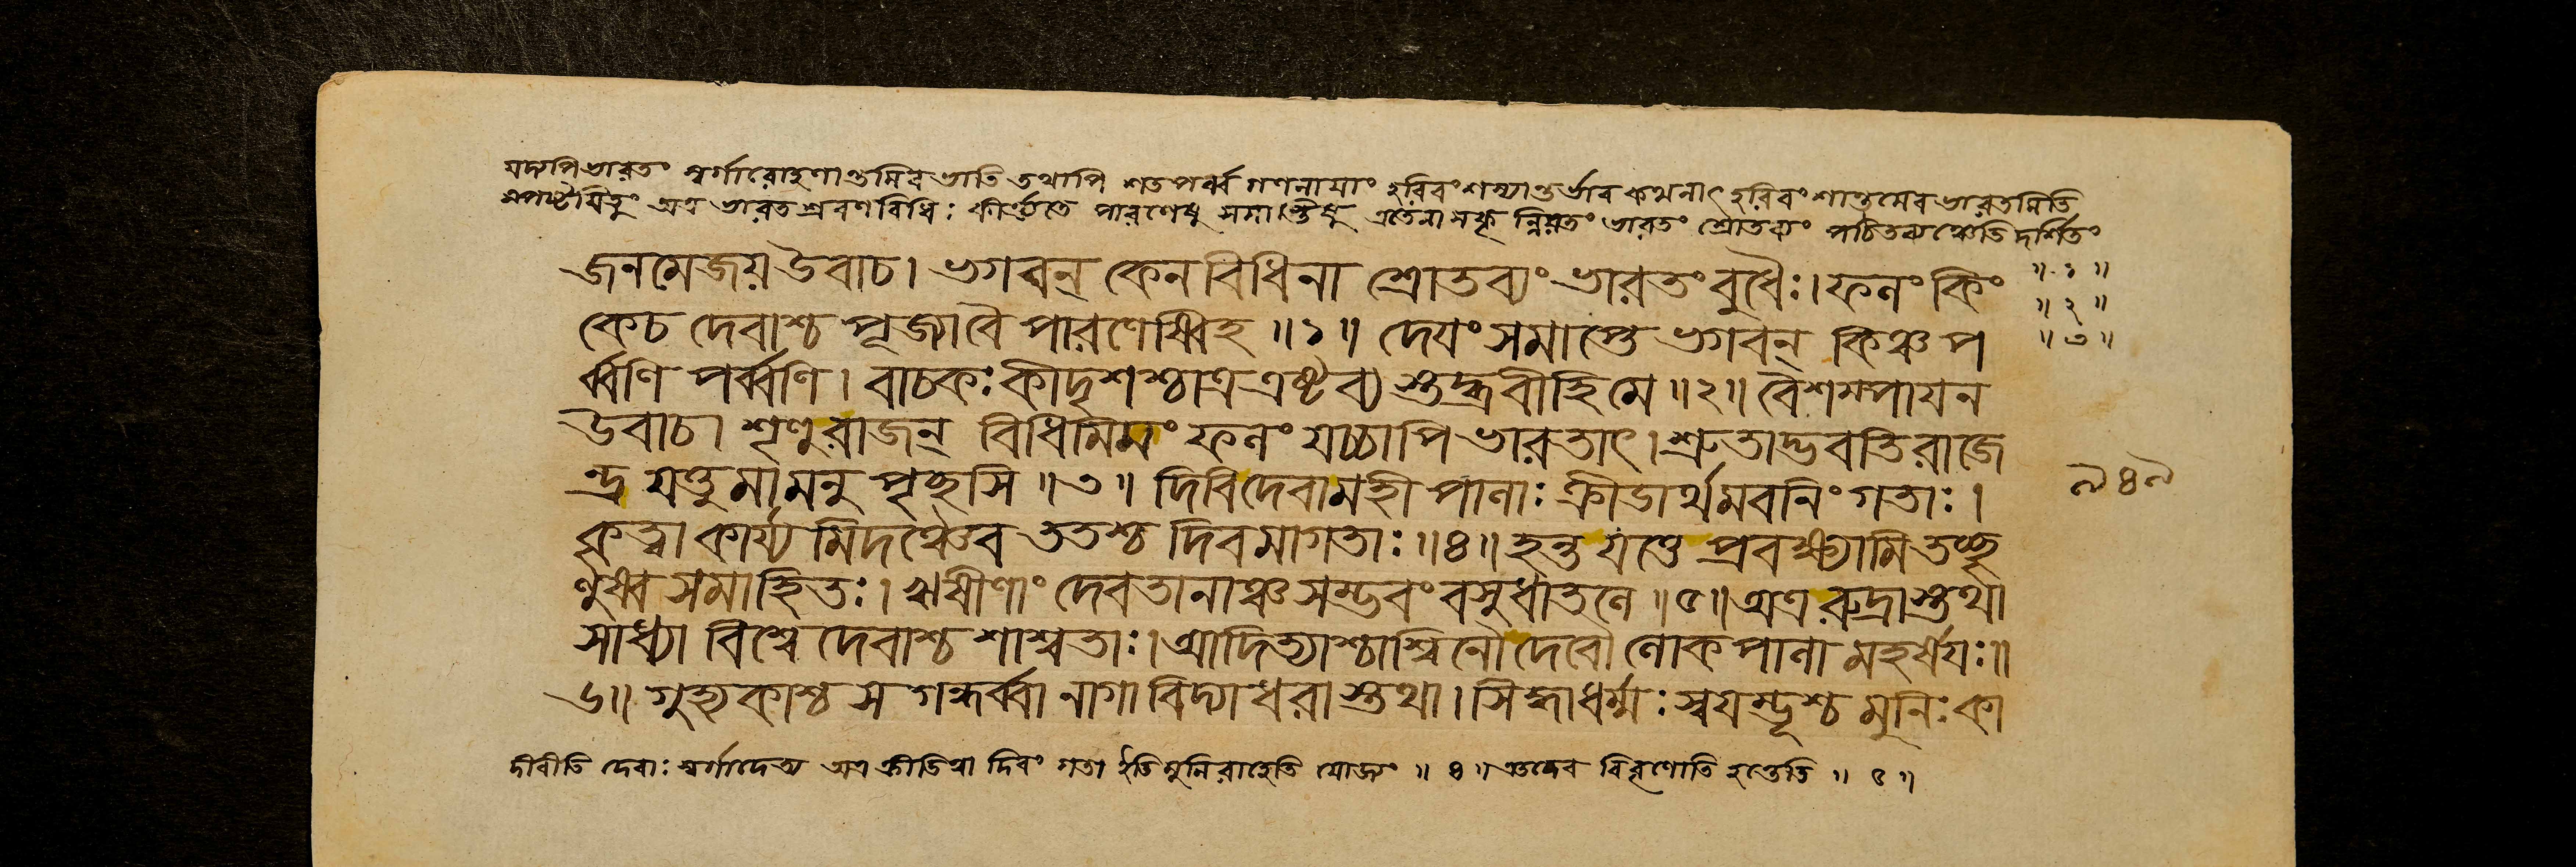 যদ্যপিভারতং স্বর্গারোহণান্তমিব ভাতি তথাপি শতপর্ব্ব গণনায়াং হরিবংশস্যান্তর্ভাব কথনাৎ হরিবংশান্তমেব ভারতমিতি
স্পষ্টয়িতুং অত্র ভারত শ্রবণ বিধিঃ কীর্ত্ত্যতে পারণেষু সমাপ্তিষু এতেনাসকৃন্নিয়তং ভারতং শ্রোতব্যং পঠিতব্যঞ্চেতি দর্শিতং
॥ ১ ॥
জনমেজয় উবাচ। ভগবন্ কেন বিধিনা শ্রোতব্যং ভারতং বুধৈঃ। ফলং কিং
॥ ২ ॥
কেচ দেবাশ্চ পূজ্যাবৈ পারণেষ্বিহ ॥১॥ দেয়ং সমাপ্তে ভগবন্ কিঞ্চ প
॥ ৩ ॥
র্ব্বণি পর্ব্বণি। বাচকঃ কীদৃশশ্চাত্র এষ্টব্য স্তদ্ব্রবীহিমে ॥২॥ বৈশম্পায়ন
উবাচ। শৃণুরাজন্ বিধিমিমং ফলং যচ্চাপি ভারতাৎ। শ্রুতাদ্ভবতি রাজে
ন্দ্র যত্ত্বং মামনু পৃচ্ছসি ॥৩॥ দিবিদেবামহী পালাঃ ক্রীডার্থমবনিং গতাঃ।
৯৪৯
কৃত্বা কার্য্য মিদঞ্চৈব ততশ্চ দিবমাগতাঃ ॥৪॥ হন্ত যত্তে প্রবক্ষ্যামি তচ্ছৃ
ণুষ্ব সমাহিতঃ। ঋষীণাং দেবতানাঞ্চ সম্ভবং বসুধাতলে ॥৫॥ অত্র রুদ্রাস্তথা
সাধ্যা বিশ্বে দেবাশ্চ শাশ্বতাঃ। আদিত্যাশ্চাশ্বিনৌ দেবৌ লোকপালা মহর্ষয়ঃ॥
৬॥ গুহ্যকাশ্চ স গন্ধর্ব্বা নাগা বিদ্যাধরাস্তথা। সিদ্ধাধর্ম্মঃ স্বয়ম্ভূশ্চ মুনিঃ কা
দীবীতি দেবাঃ স্বর্গাদেত্য অত্র ক্রীডিত্বা দিবং গতা ইতি মুনিরাহেতি যোজ্যং ॥ ৪ ॥ এতদেব বিবৃণোতি হন্তেতি ॥ ৫ ॥